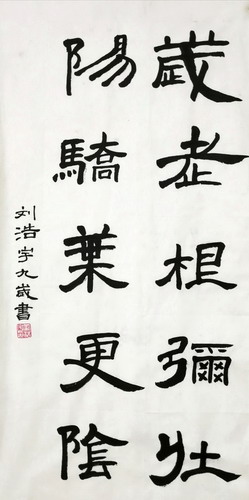 歲老根彌壯
陽驕葉更陰
刘浩宇九歲書